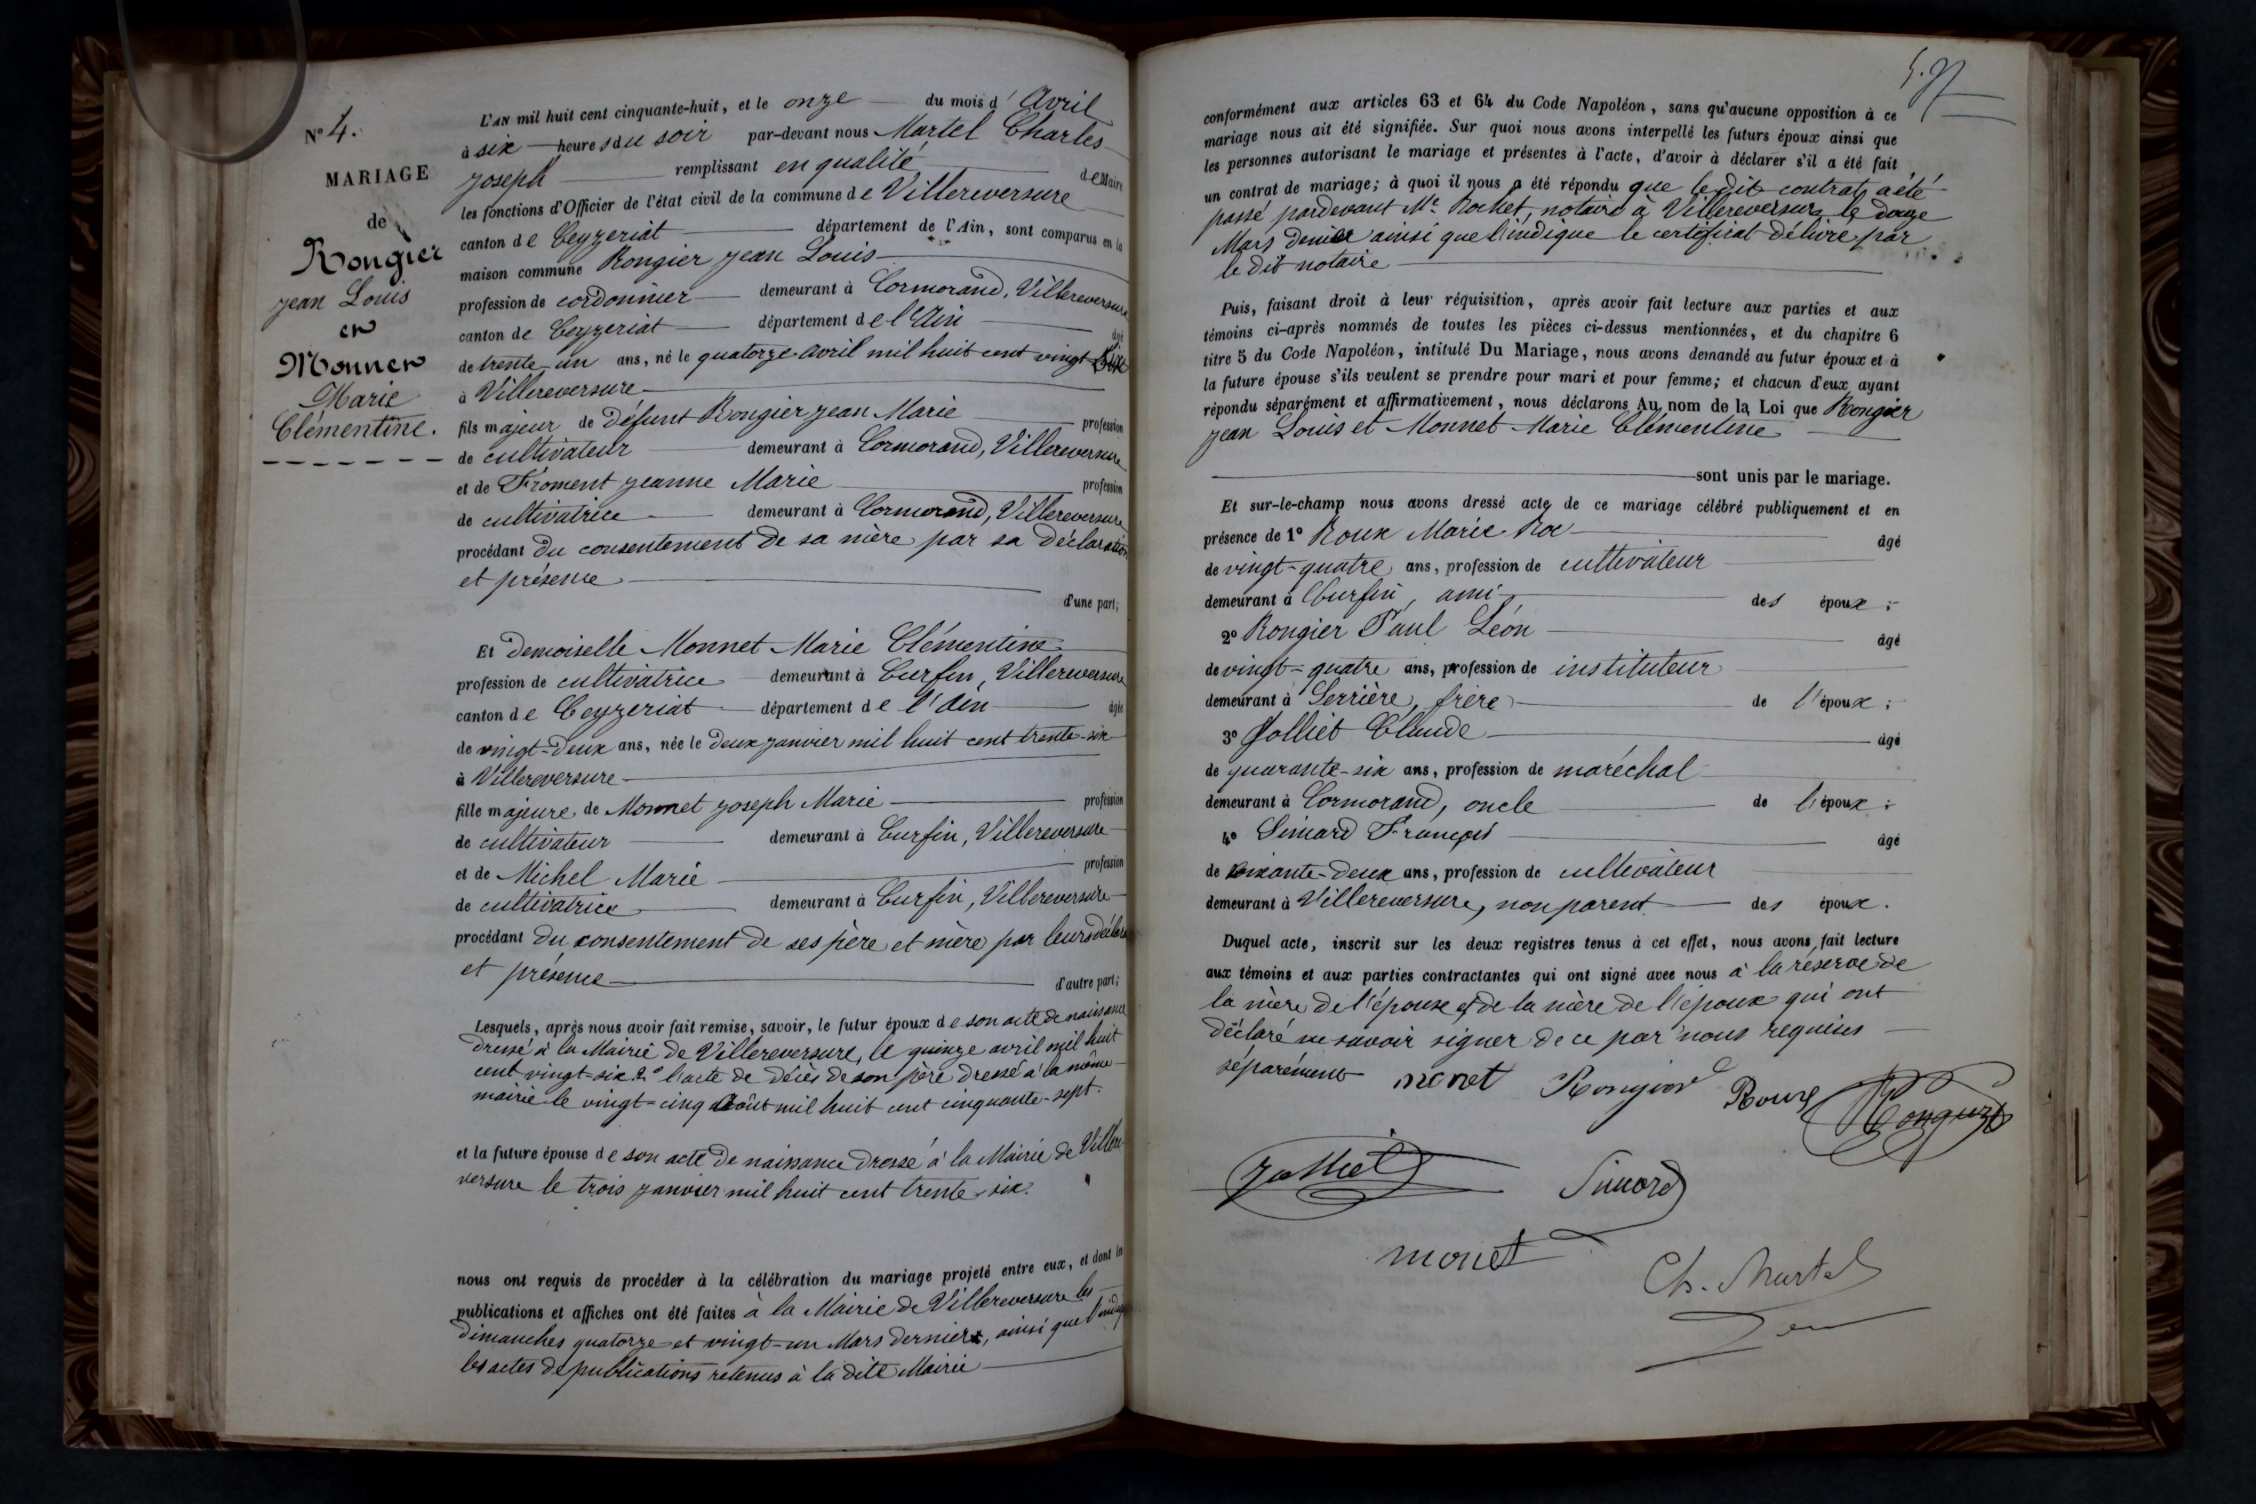 N° 4.
MARIAGE
de
Rongier
Jean Louis
et
Monnet
Marie
Clémentine.
L'AN mil huit cent cinquante-huit, et le onze du mois d'Avril
à six heures du soir par-devant nous Martel Charles
Joseph remplissant en qualité de Maire
les fonctions d'Officier de l'état civil de la commune de Villereversure
canton de Ceyzeriat département de l'Ain, sont comparus en la
maison commune Rongier Jean Louis
profession de cordonnier demeurant à Cormorand, Villereversure
canton de Ceyzeriat département de l'Ain âgé
de trente un ans, né le quatorze avril mil huit cent vingt six
à Villereversure
fils majeur de défunt Rongier Jean Marie profession
de cultivateur demeurant à Cormorand, Villereversure
et de Froment Jeanne Marie profession
de cultivatrice demeurant à Cormorand, Villereversure
procédant du consentement de sa mère par sa déclaration
et présence
d'une part;
Et demoiselle Monnet Marie Clémentine
profession de cultivatrice demeurant à Curfin, Villereversure
canton de Ceyzeriat département de l'Ain âgée
de vingt-deux ans, née le deux janvier mil huit cent trente-six
à Villereversure
fille majeure de Monnet Joseph Marie profession
de cultivateur demeurant à Curfin, Villereversure
et de Michel Marie profession
de cultivatrice demeurant à Curfin, Villereversure
procédant du consentement de ses père et mère par leurs déclara
et présence
d'autre part;
Lesquels, après nous avoir fait remise, savoir, le futur époux de son acte de naissance
dressé à la Mairie de Villereversure, le quinze avril mil huit
cent vingt-six 2° l'acte de décès de son père dressé à la même
mairie le vingt-cinq août mil huit cent cinquante-sept.
et la future épouse de son acte de naissance dressé à la Mairie de Villere
versure le trois janvier mil huit cent trente-six.
nous ont requis de procéder à la célébration du mariage projeté entre eux, et dont les
publications et affiches ont été faites à la Mairie de Villereversure les
dimanches quatorze et vingt-un Mars dernier, ainsi que l'indiq
les actes de publications retenus à la dite Mairie
conformément aux articles 63 et 64 du Code Napoléon, sans qu'aucune opposition à ce
mariage nous ait été signifiée. Sur quoi nous avons interpellé les futurs époux ainsi que
les personnes autorisant le mariage et présentes à l'acte, d'avoir à déclarer s'il a été fait
un contrat de mariage; à quoi il nous a été répondu que le dit contrat a été
passé pardevant Me Rochet, notaire à Villereversure le douze
Mars dernier ainsi que l'indique le certificat délivré par
le dit notaire
Puis, faisant droit à leur réquisition, après avoir fait lecture aux parties et aux
témoins ci-après nommés de toutes les pièces ci-dessus mentionnées, et du chapitre 6
titre 5 du Code Napoléon, intitulé Du Mariage, nous avons demandé au futur époux et à
la future épouse s'ils veulent se prendre pour mari et pour femme; et chacun d'eux ayant
répondu séparément et affirmativement, nous déclarons Au nom de la Loi que Rongier
Jean Louis et Monnet Marie Clémentine
sont unis par le mariage.
Et sur-le-champ nous avons dressé acte de ce mariage célébré publiquement et en
présence de 1° Roux Marie Roc âgé
de vingt-quatre ans, profession de cultivateur
demeurant à Curfin, ami des époux;
2° Rongier Paul Léon âgé
de vingt-quatre ans, profession de instituteur
demeurant à Serrière, frère de l'époux;
3° Jolliet Claude âgé
de quarante-six ans, profession de maréchal
demeurant à Cormorand, oncle de l'époux;
4° Simard François âgé
de soixante-deux ans, profession de cultivateur
demeurant à Villereversure, non parent des époux.
Duquel acte, inscrit sur les deux registres tenus à cet effet, nous avons fait lecture
aux témoins et aux parties contractantes qui ont signé avec nous à la réserve de
la mère de l'épouse et de la mère de l'époux qui ont
déclaré ne savoir signer de ce par nous requises
séparément monet Rongier Roux Rongier
Jolliet Simard
monet
Ch. Martel